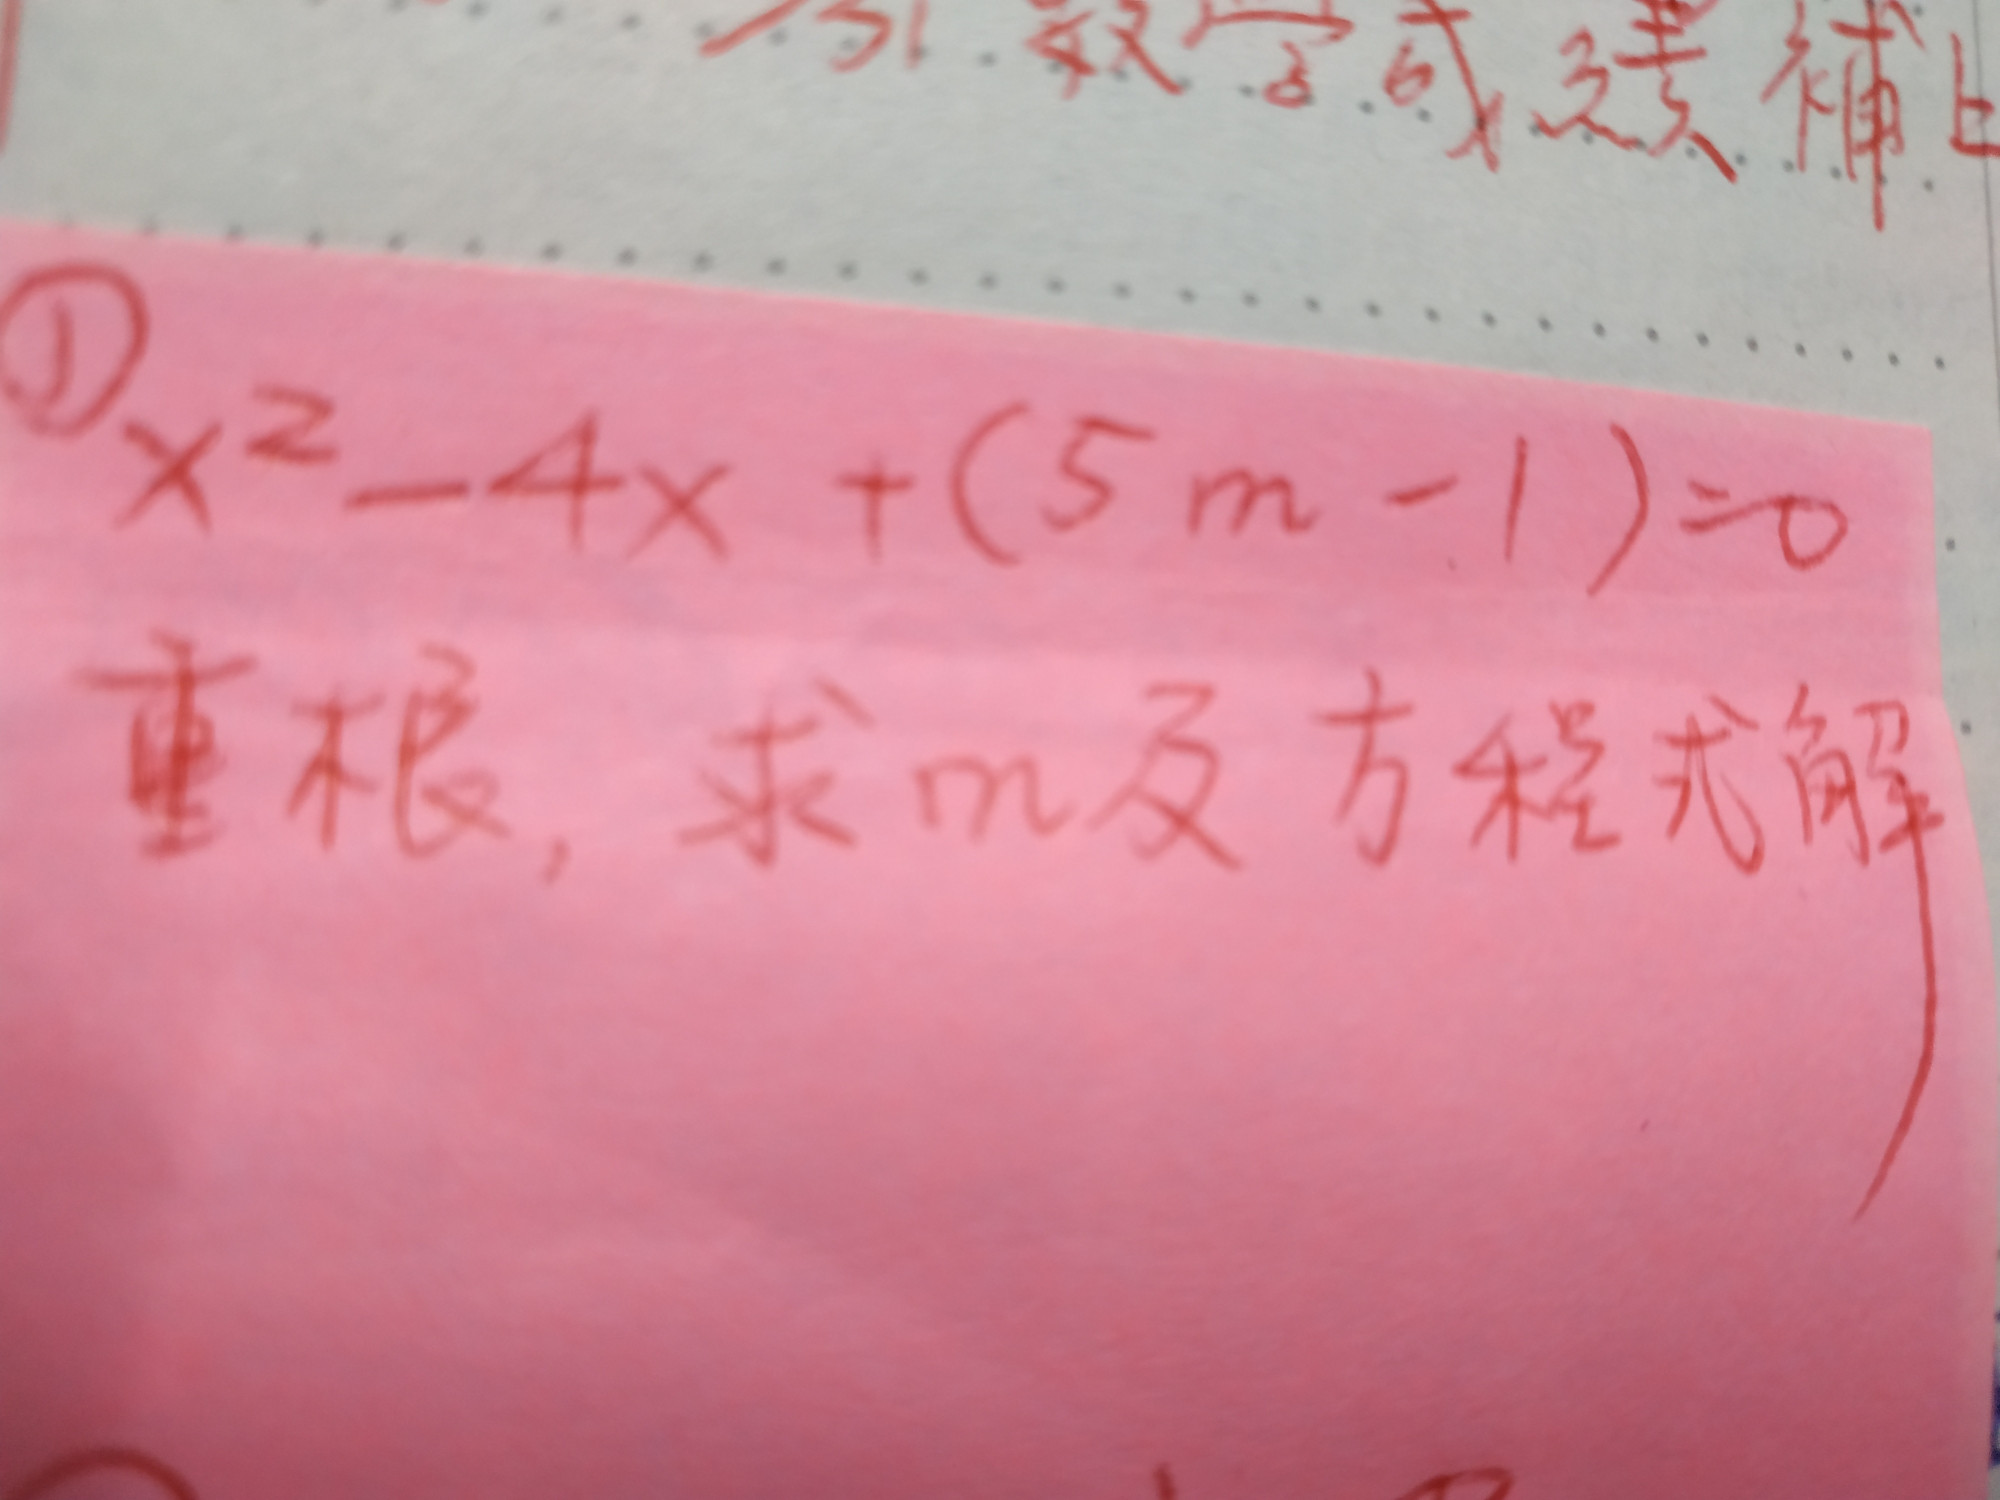 數學或錢補上
①x²-4x+(5m-1)=0
重根,求m及方程式解